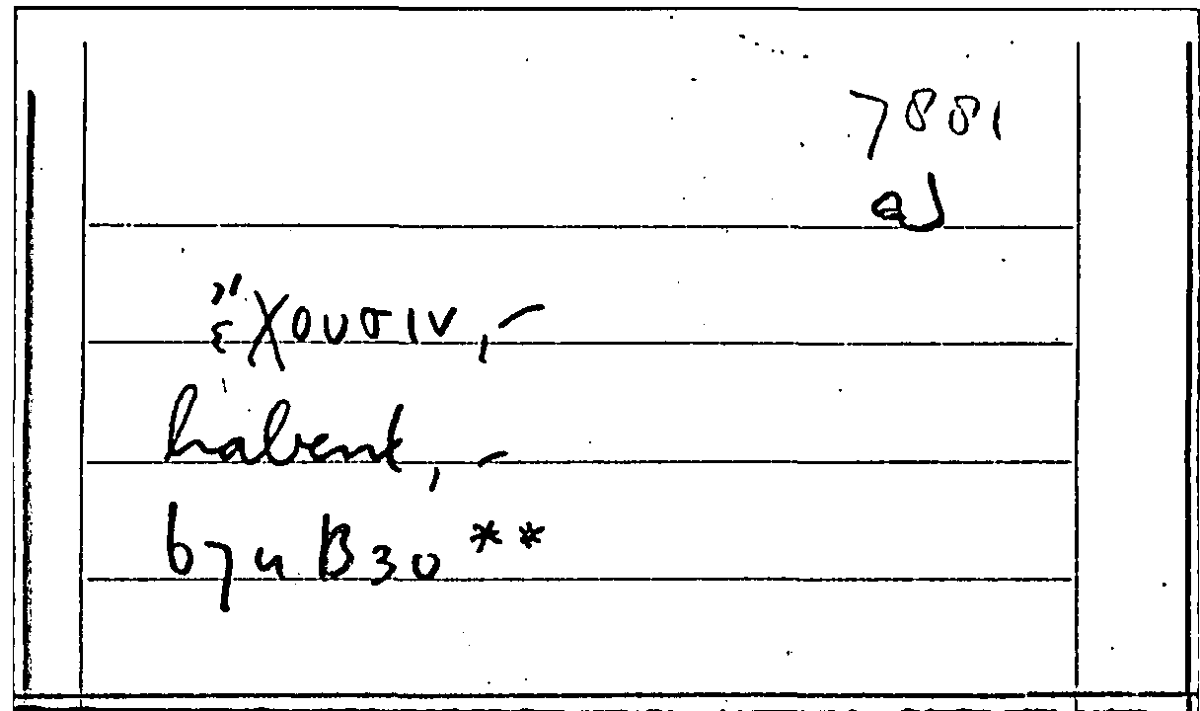 7881
a)
ἔχουσιν, –
habent, –
674 B30 **